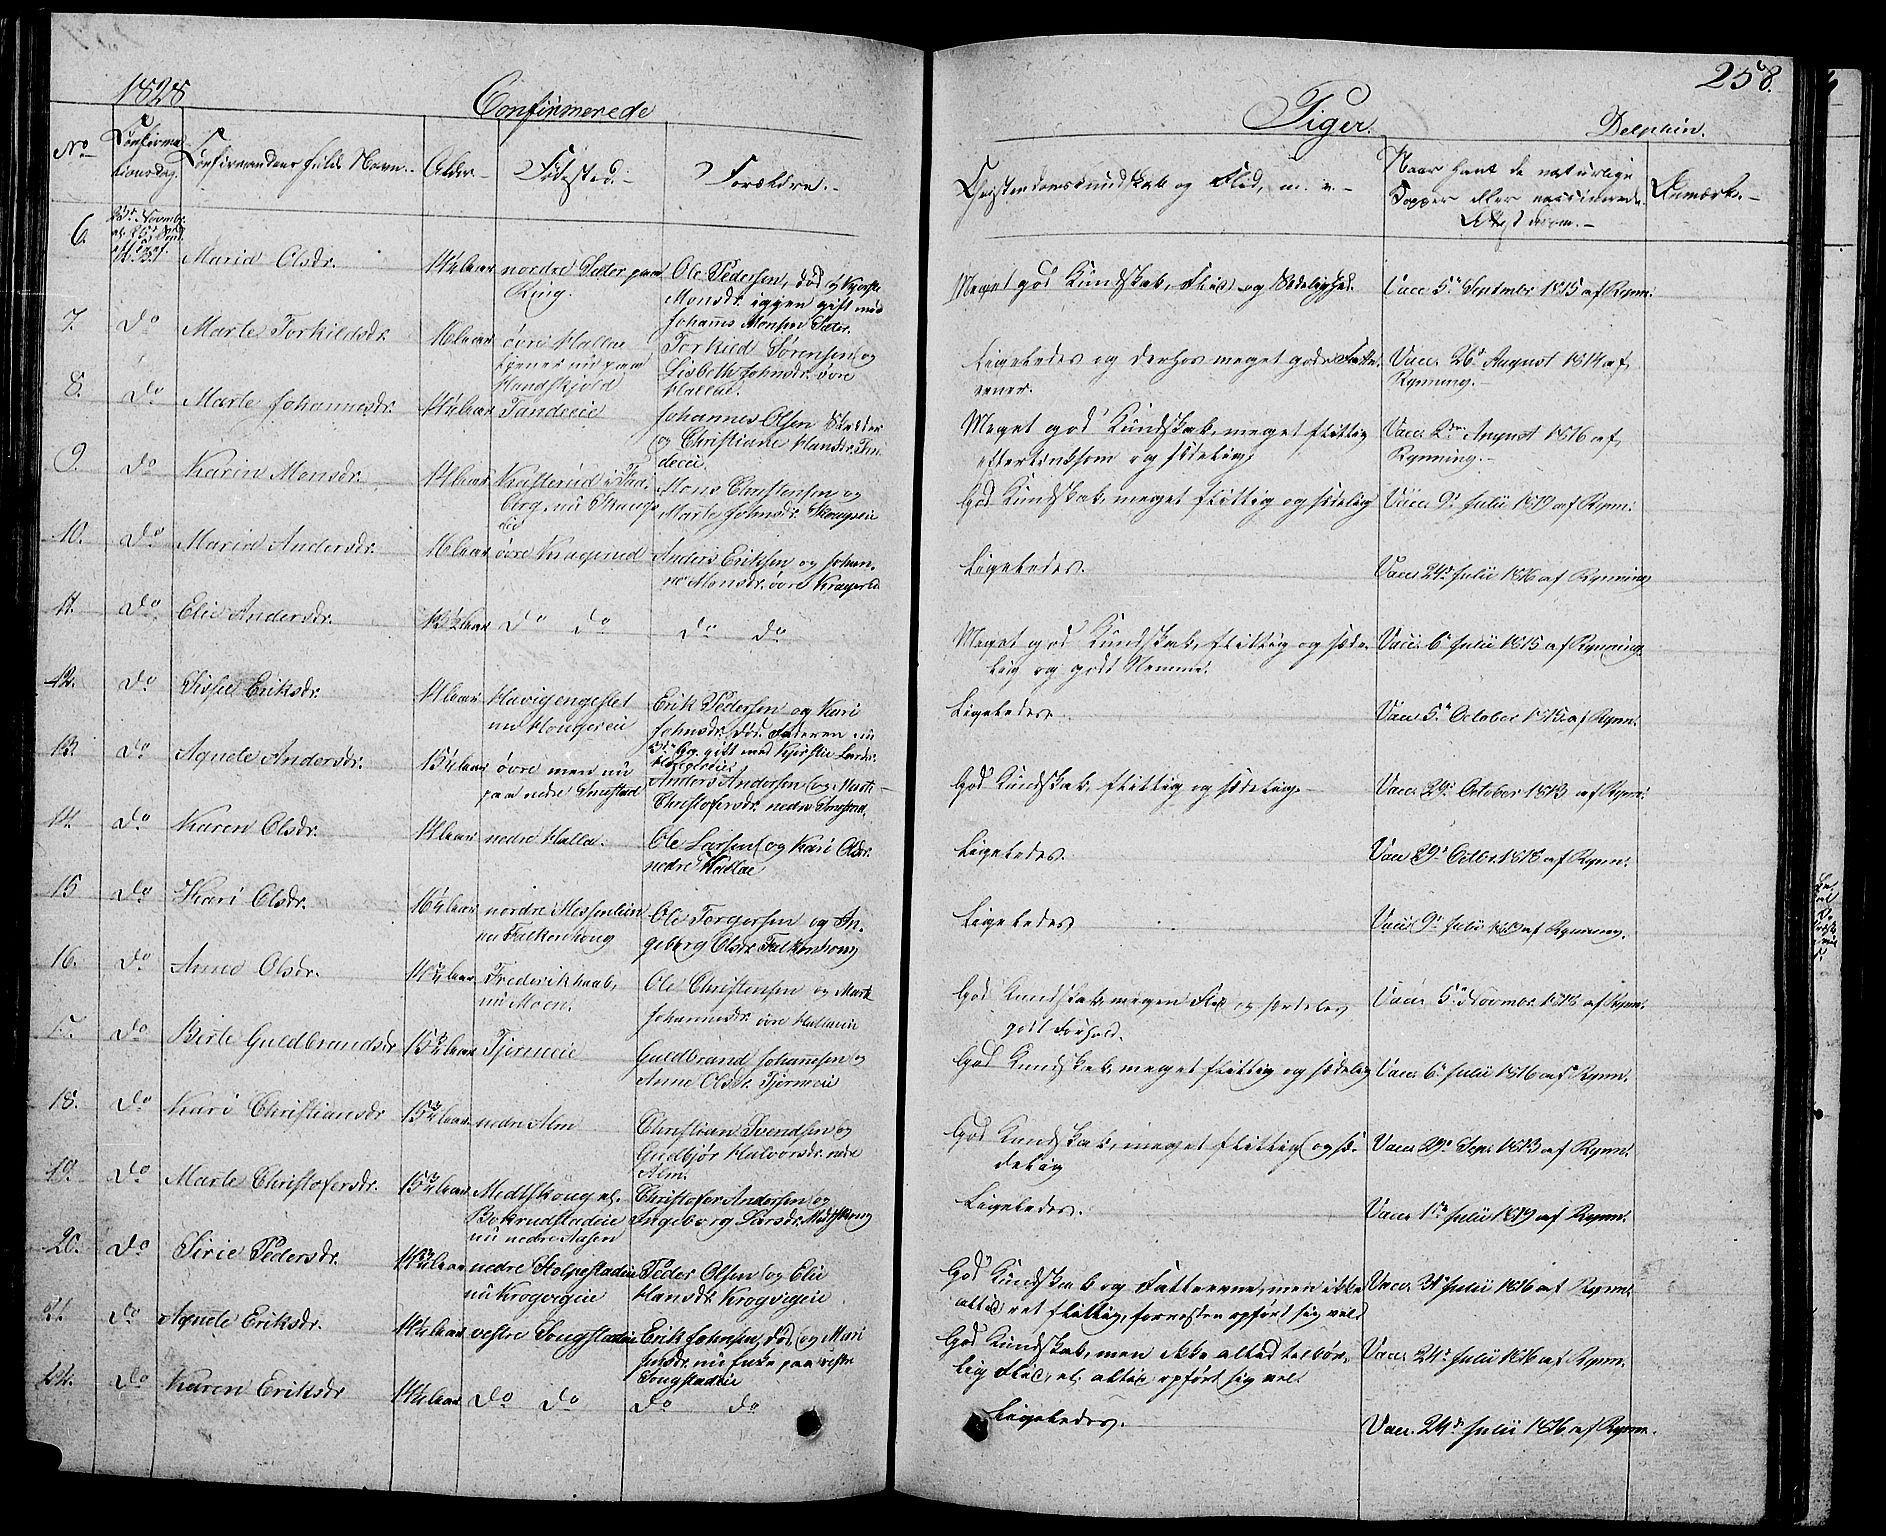 1828
Confirmerede
Tiger.
Delphin.
258.
No
Confirma
tionsdag.
Confirmandens fulde Navn.
Alder.
Fødested.
Forældre.
Christendomskundskab og Flid, m. v.
Naar havt de naturlige
Kopper eller vaccinerede
Anmærk.
6.
Maria Olsdr.
14½ aar
nordre Sæter paa
Ring.
Ole Pedersen, død og Kjersti
Monsdr. iggen gift med
Johannes Monsen Sæter.
Meget god Kundskab, Flid og Sædelighed.
Vacc. 5te September 1815 af Rynn:
7.
Do
Marte Torkildsdr.
16 aar
øvre Hallae
tjener nu paa
Torkild Sørensen og
Lisbeth Johnsdr. øvre
Hallae.
Ligeledes og derhos meget gode Fatte
evner.
Vacc. 26de August 1814 af
Rynning.
8.
Do
Marte Johannesdr.
14½ aar
Tandeeie
Johannes Olsen
og Christiane Hansdr. Tan
deeie.
Meget god Kundskab, meget flittig
eftertænksom og sædelig.
Vacc. August 1816 af
Rynning.
9.
Do
Karin Monsdr.
14 aar
Mons Christensen og
Marte Johnsdr. Skougseie
God Kundskab, meget flittig og sædelig
Vacc. 9de Julii 1819 af Rynn:
10.
Do
Maria Andersdr.
16 aar
øvre Kragerud
Anders Eriksen og Johan
ne Monsdr. øvre Kragerud
Ligeledes.
Vacc. 24de Julii 1816 af Rynning
11.
Do
Elie Andersdr.
Do Do
Do Do
Meget god Kundskab, flittig og sæde
lig og godt Nemme.
Vacc. 6te Julii 1815 af Rynning
12.
Do
Sissel Eriksdr.
14 aar
Havigengeflet
Erik Pedersen og Kari
Johnsdr. død. Faderen nu
Ligeledes
Vacc. 5te October 1815 af Rynn:
13.
Do
Agnete Andersdr.
15¼ aar
øvre men nu
paa nedre Smestad
Anders Andersen og Marte
Christofersdr. nedre Smestad.
God Kundskab, flittig og sædelig
Vacc. 29de October 1813 af Rynn:
14.
Do
Karen Olsdr.
14 aar
nedre Halla.
Ole Larsen og Kari Olsdr.
nedre Hallae
Ligeledes.
Vacc 29de Octbr. 1818 af Rynn:
15
Do
Kari Olsdr.
16¼ aar
nordre Messenlien
nu Falkenhoug
Ole Torgersen og In
geborg Olsdr. Falkenhoug
Ligeledes
Vacc. 9de Julii af Rynning.
16.
Do
Anne Olsdr.
Frederikhaab,
nu Moen.
Ole Christensen og Marte
Johannesdr. øvre Hallaeie
God Kundskab, megen Flid og særdeles
godt Forhold.
Vacc. 5te Novembr. 1818 af Rynn:
17.
Do
Birte Guldbrandsdr.
15¾ aar
Tjerneeie
Guldbrand Johansen og
Anne Olsdr. Tjerneeie
God Kundskab, meget flittig og sædelig
Vacc. 6te Julii 1816 af Rynn.
18.
Do
Kari Christiansdr
15¾ aar
nedre Alm
Christian Svendsen og
Gudbjør Halvorsdr. nedre
Alm.
God Kundskab, meget flittig og sæ
delig
Vacc. 29de Sept. 1813 af Rynn:
19.
Do
Marte Christofersdr.
15¾ aar
Medtskoug el.
Bokrudstadeie
nu nedre Aasen
Christofer Andersen og
Ingeborg Larsdr. Medtskoug
Ligeledes.
Vacc. 1ste Julii 1819 af Rynn.
20.
Do
Sirie Pedersdr.
14¾ aar
nedre Stolpestadeie
nu Krogvigeie
Peder Olsen og Elie
Hansdr. Krogvigeie
God Kundskab og Fatteevne, men ikke
altid ret flittig, forresten opført sig vel
Vacc. 31te Julii 1816 af Rynn.
21.
Do
Agnete Eriksdr.
14½ aar
vestre Sougstadeie
Erik Johnsen, død, og Mari
Jensdr. nu Enke paa vestre
Sougstadeie
God Kundskab, men ikke altid tilbør
lig Flid, el. altid opført sig vel
Vacc. 24de Julii 1816 af Rynn.
22.
Do
Karen Eriksdr
14½ aar
Do Do
Do Do
Ligeledes.
Vacc. 24de Julii 1816 af Rynn.